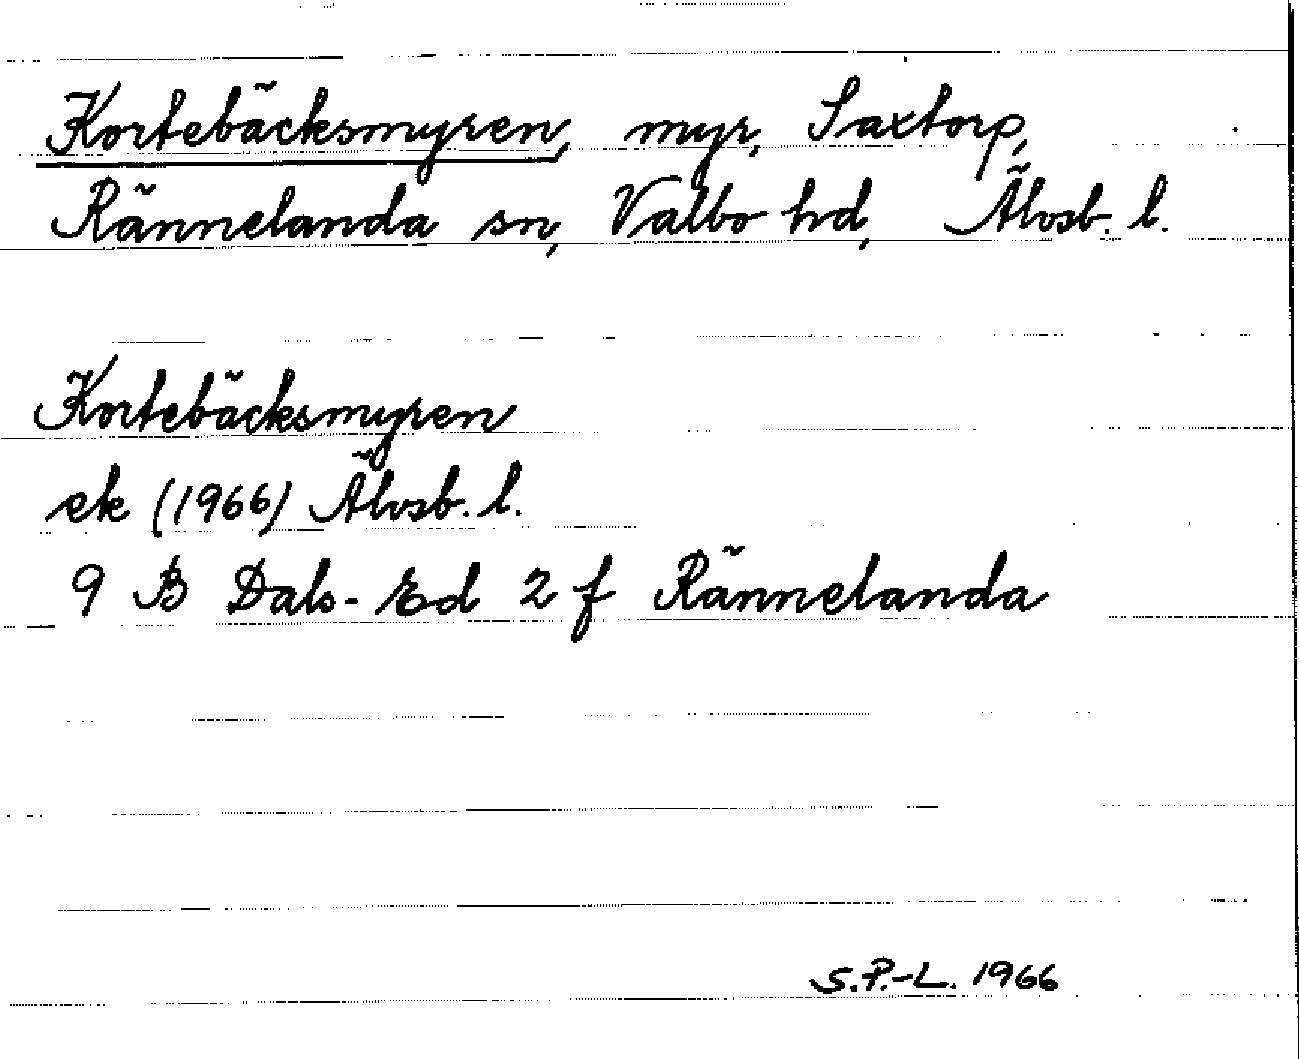 Kortebäcksmyren, myr, Saxtorp,
Rännelanda sn, Valbo hd, Älvsb. l.
Kortebäcksmyren
ek (1966) Älvsb. l.
9 B Dals-Ed 2 f Rännelanda
S.P.-L. 1966